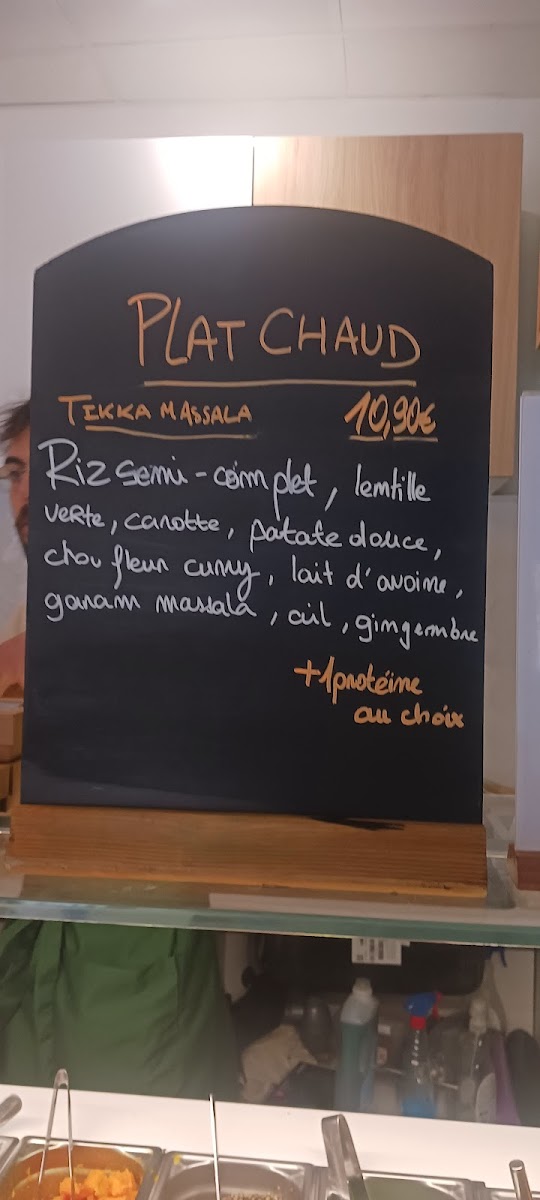 PLAT CHAUD
TIKKA MASSALA 10,90€
Riz semi-complet, lentille
verte, carotte, patate douce,
chou fleur curry, lait d'avoine,
garam massala, ail, gingembre
+1 protéine
au choix